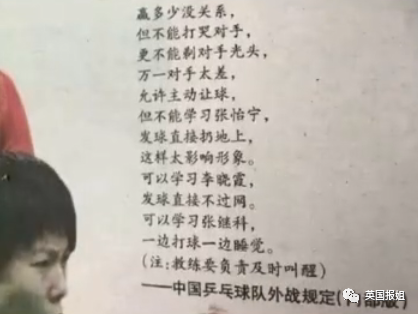 赢多少没关系，
但不能打哭对手，
更不能剃对手光头，
万一对手太差，
允许主动让球，
但不能学习张怡宁，
发球直接扔地上，
这样太影响形象。
可以学习李晓霞，
发球直接不过网。
可以学习张继科，
一边打球一边睡觉。
(注:教练要负责及时叫醒)
——中国乒乓球队外战规定(
英国报姐